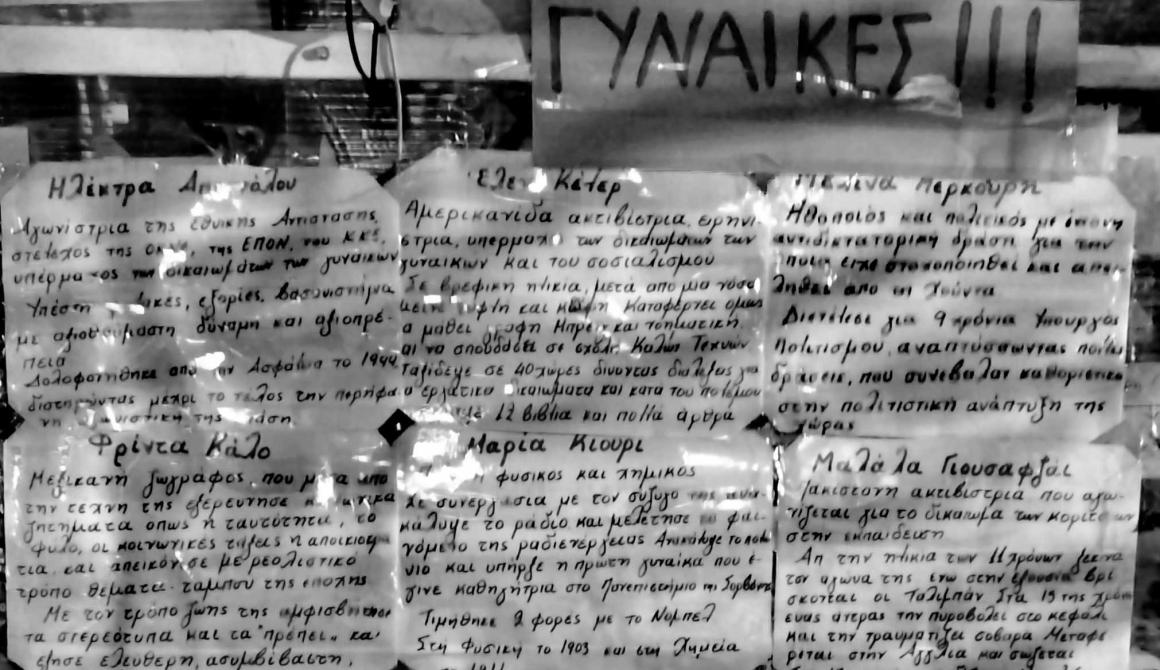 ΓΥΝΑΙΚΕΣ !!!
Ηλέκτρα
Αγωνίστρια της Εθνικής Αντίστασης,
στέλεχος της της ΕΠΟΝ, του ΚΚΕ,
των δικαιωμάτων των γυναικών
Υπέστη εξορίες, βασανιστήρια
με αξιοθαύμαστη δύναμη και αξιοπρέ-
πεια
Δολοφονήθηκε από την Ασφάλεια το 1944
διατηρώντας μέχρι το τέλος την περήφα-
νη της στάση
Ελεν Κέλερ
Αμερικανίδα ακτιβίστρια, ειρηνί
στρια, υπέρμαχο των δικαιωμάτων των
γυναικών και του σοσιαλισμού
Σε βρεφική ηλικία, μετά από μια νόσο
μένει τυφλή και κωφή Καταφέρνει όμως
α μάθει γραφή Μπρέιγ και νοηματική,
αι να σπουδάσει σε σχολή Καλών Τεχνών
Ταξίδεψε σε 40 χώρες δίνοντας διαλέξεις για
α εργατικά δικαιώματα και κατά του πολέμου
12 βιβλία και πολλά άρθρα
Μελίνα Μερκούρη
Ηθοποιός και πολιτικός με έντονη
αντιδικτατορική δράση για την
οποία είχε στοχοποιηθεί και απει-
ληθεί από τη Χούντα
Διετέλεσε για 9 χρόνια Υπουργός
Πολιτισμού, αναπτύσσοντας πολλές
δράσεις, που συνέβαλαν καθοριστικά
στην πολιτιστική ανάπτυξη της
χώρας
Φρίντα Κάλο
Μεξικανή ζωγράφος, που μέσα από
την τέχνη της εξερεύνησε κοινωνικά
ζητήματα όπως η ταυτότητα, το
φύλο, οι κοινωνικές τάξεις η αποικιοκρα
τία και απεικόνισε με ρεαλιστικό
τρόπο θέματα - ταμπού της εποχής
Με τον τρόπο ζωής της αμφισβήτησε
τα στερεότυπα και τα "πρέπει" και
έζησε ελεύθερη, ασυμβίβαστη,
Μαρία Κιουρί
φυσικός και χημικός
Σε συνεργασία με τον σύζυγό της ανα-
κάλυψε το ράδιο και μελέτησε το φαι-
νόμενο της ραδιενέργειας Ανακάλυψε το πολώ
νιο και υπήρξε η πρώτη γυναίκα που έ-
γινε καθηγήτρια στο Πανεπιστήμιο της Σορβόνης
Τιμήθηκε 2 φορές με το Νόμπελ
Στη Φυσική το 1903 και στη Χημεία
1911
Μαλάλα Γιουσαφζάι
Πακιστανή ακτιβίστρια που αγω-
νίζεται για το δικαίωμα των κοριτσιών
στην εκπαίδευση
Απ την ηλικία των 11 χρόνων ξεκινά
τον αγώνα της ενώ στην εξουσία βρί
σκονται οι Ταλιμπάν Στα 15 της χρόνια
ένας άντρας την πυροβολεί στο κεφάλι
και την τραυματίζει σοβαρά Μεταφέ
ρεται στην Αγγλία και σώζεται